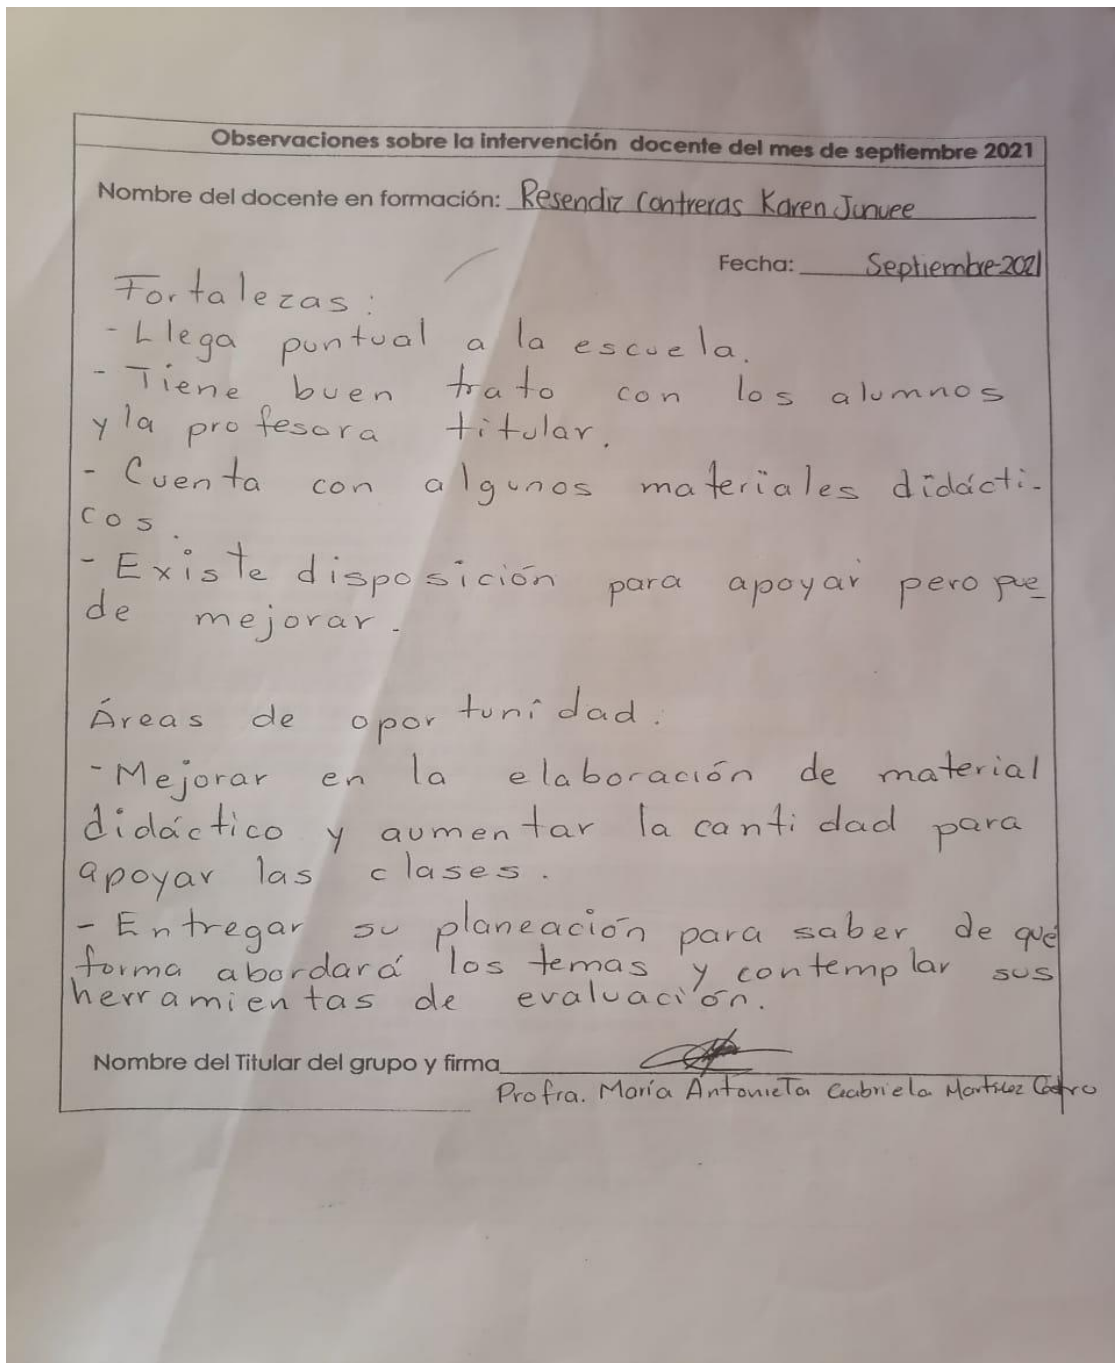 Observaciones sobre la intervención docente del mes de septiembre 2021
Nombre del docente en formación: Resendiz Contreras Karen Junuee
Fecha: Septiembre-2021
Fortalezas:
- Llega puntual a la escuela.
- Tiene buen trato con los alumnos
y la profesora titular.
- Cuenta con algunos materiales didácti-
cos.
- Existe disposición para apoyar pero pue
de mejorar.
Áreas de oportunidad.
- Mejorar en la elaboración de material
didáctico y aumentar la cantidad para
apoyar las clases.
- Entregar su planeación para saber de qué
forma abordará los temas y contemplar sus
herramientas de evaluación.
Nombre del Titular del grupo y firma
Profra. María Antonieta Gabriela